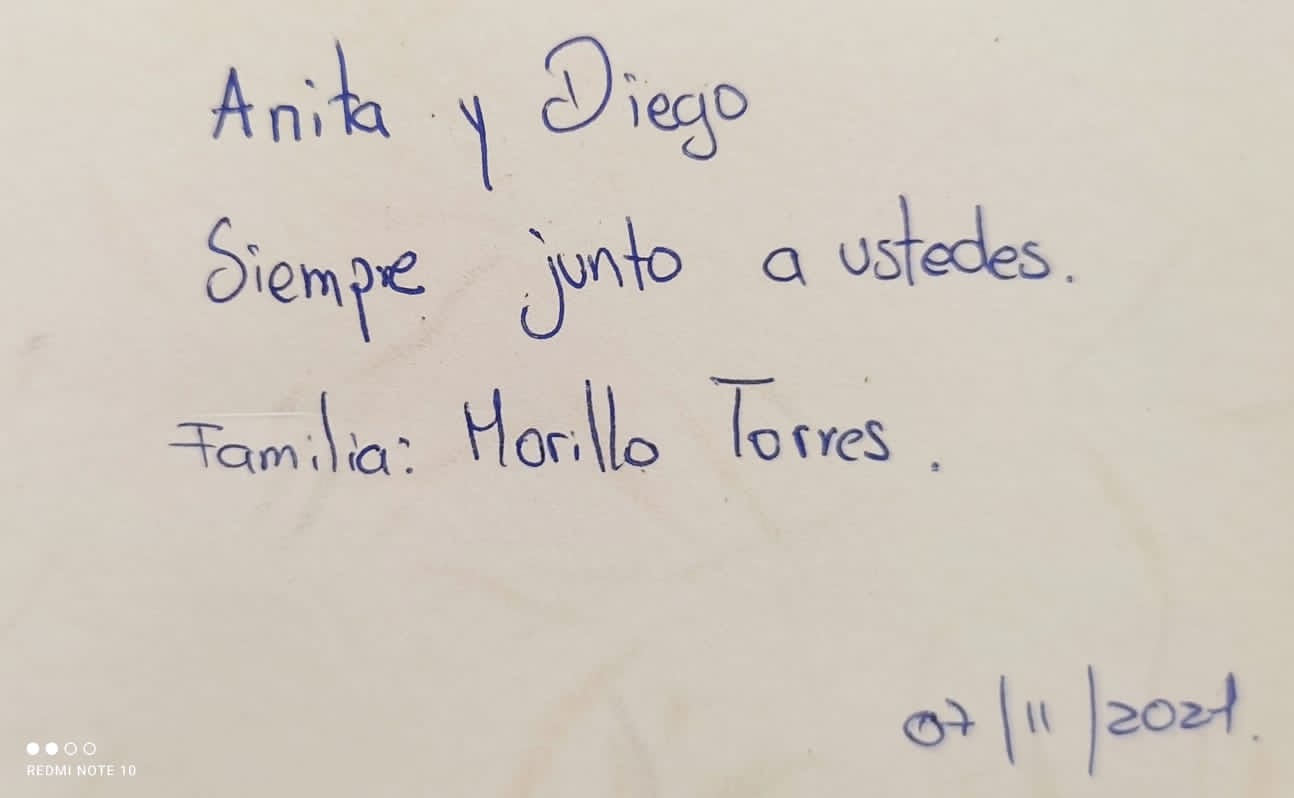 Anita y Diego
Siempre junto a ustedes.
Familia: Morillo Torres.
07/11/2021.
REDMI NOTE 10